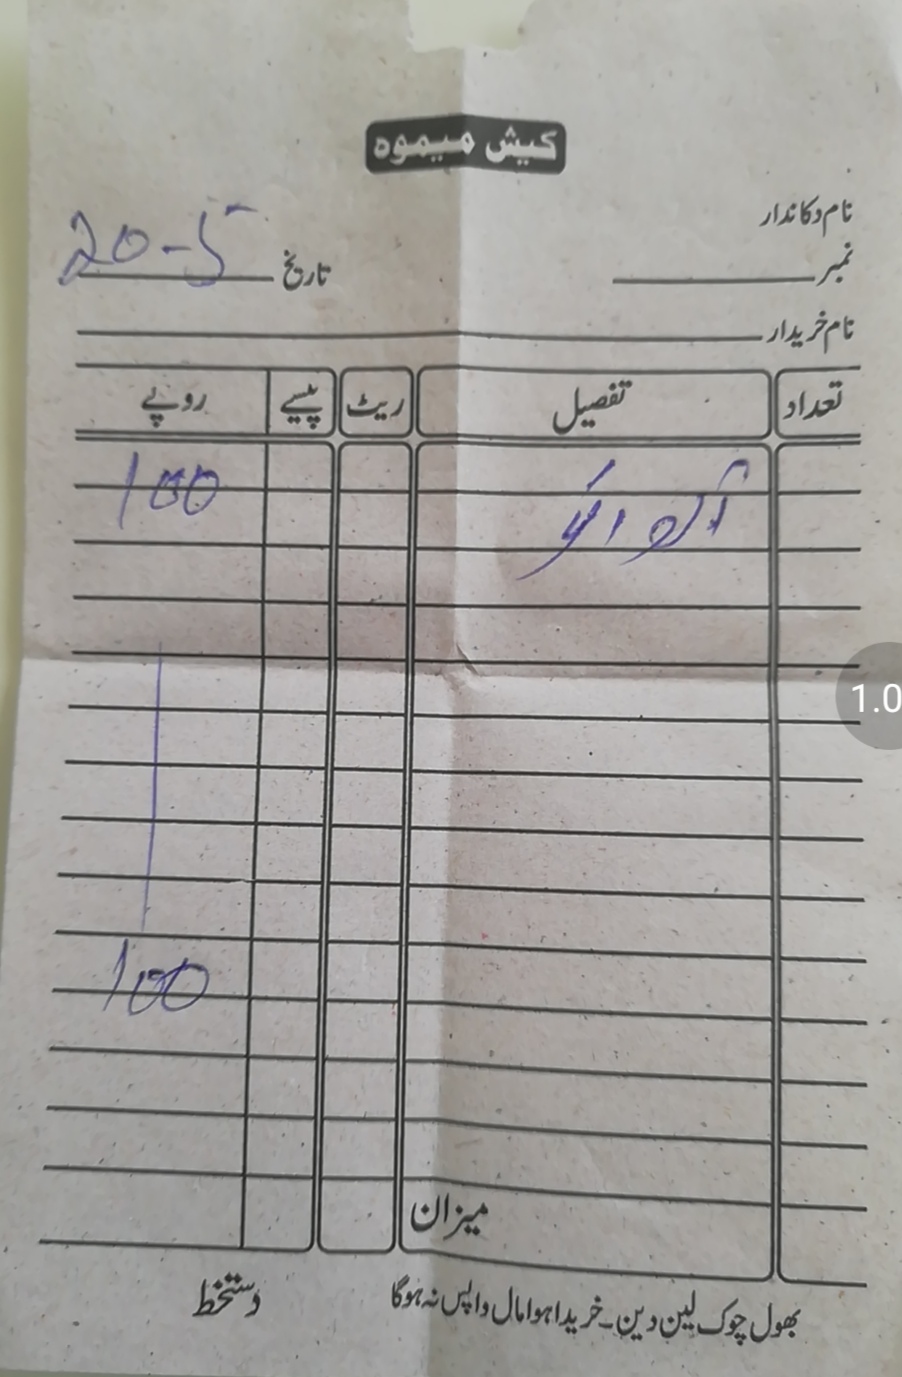 کیش میمو
نام دکاندار
نمبر
تاریخ 20-5
نام خریدار
تعداد تفصیل ریٹ پیسے روپے
100
100
میزان
بھول چوک لین دین۔ خریدا ہوا مال واپس نہ ہوگا
دستخط
1.0